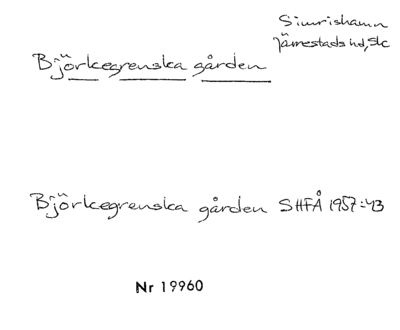 Simrishamn
Järrestads hd, Sk
Björkegrenska gården
Björkegrenska gården SHFÅ 1957:43
Nr 19960